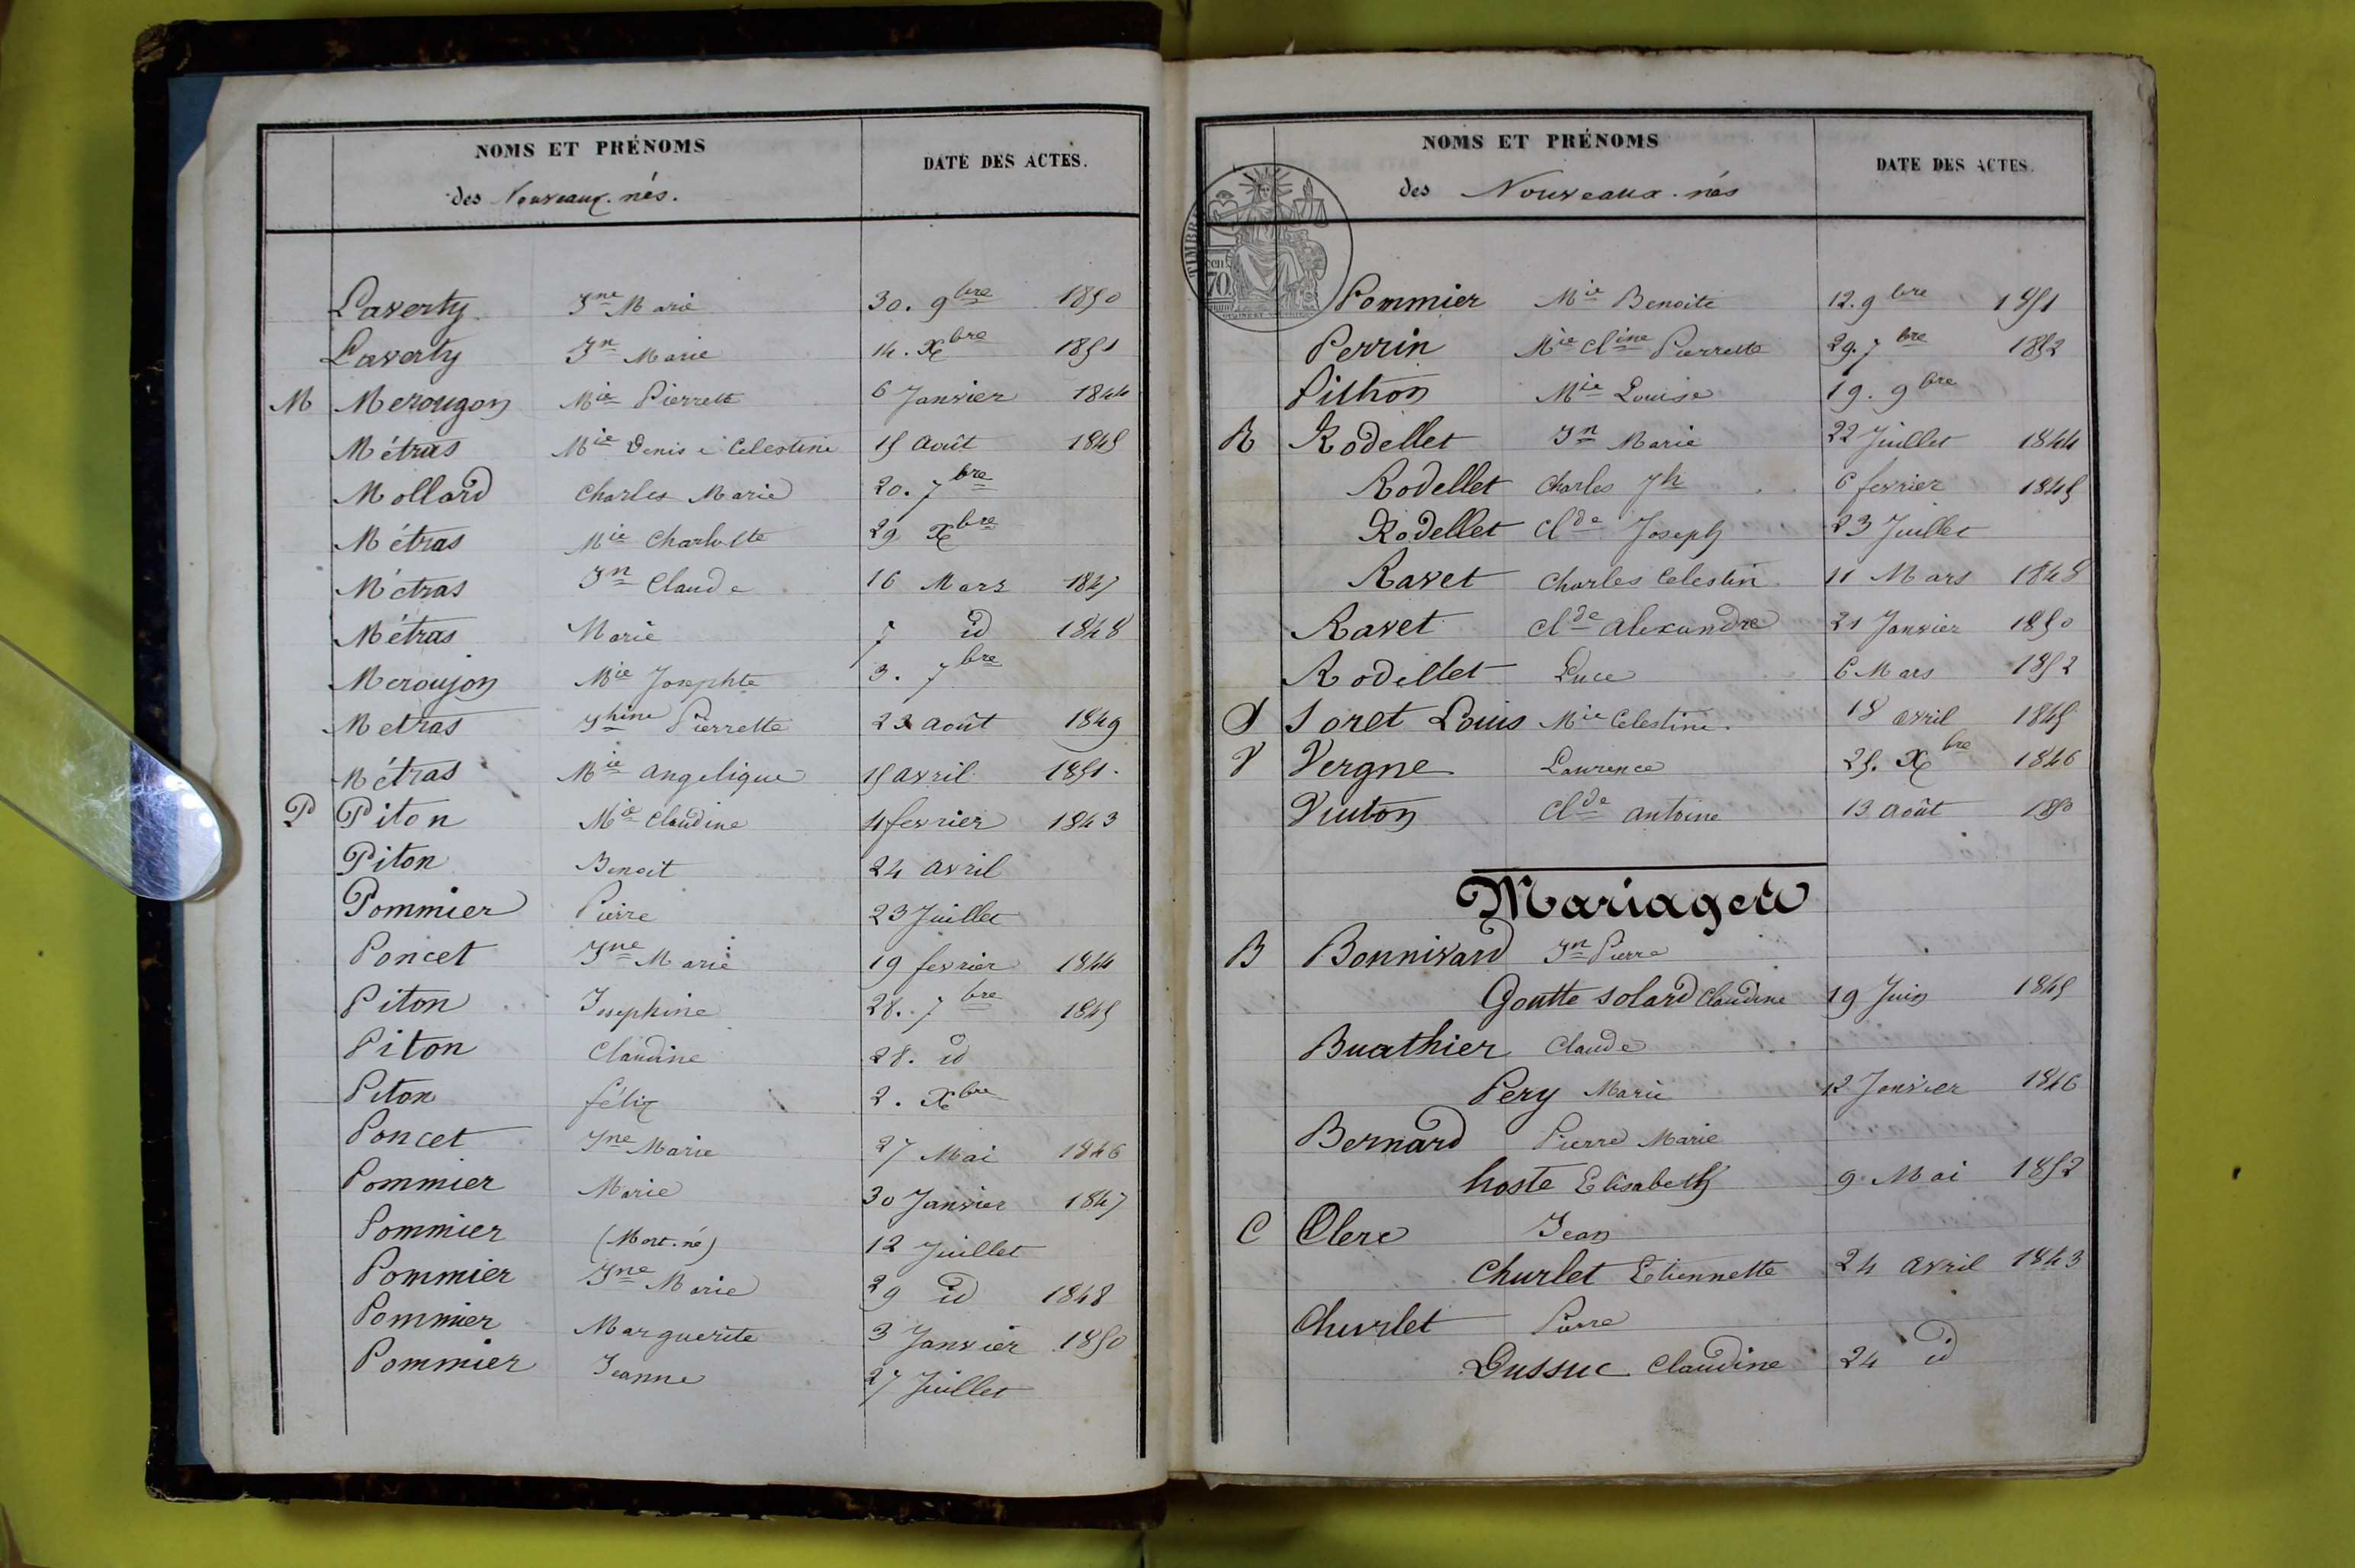 NOMS ET PRÉNOMS
DATE DES ACTES.
des Nouveaux-nés.
Laverty Jne Marie 30. 9bre 1850
Laverty Jn Marie 14. Xbre 1851
M Merougon Mie Pierrette 6 Janvier 1844
Métras Mie Denise Celestine 15 Août 1845
Mollard Charles Marie 20. 7bre
Métras Mie Charlotte 29 Xbre
Métras Jn Claude 16 Mars 1847
Métras Marie 7 id 1848
Meroujon Mie Josephte 3. 7bre
Metras Jhine Pierrette 22 Août 1849
Métras Mie Angelique 15 avril 1851.
P Piton Mie Claudine 4 fevrier 1843
Piton Benoit 24 avril
Pommier Pierre 23 Juillet
Poncet Jne Marie 19 fevrier 1844
Piton Josephine 28. 7bre 1845
Piton Claudine 28. id
Piton félix 2. Xbre
Poncet Jne Marie 27 Mai 1846
Pommier Marie 30 Janvier 1847
Pommier (Mort-né) 12 Juillet
Pommier Jne Marie 29 id 1848
Pommier Marguerite 3 Janvier 1850
Pommier Jeanne 27 Juillet
NOMS ET PRÉNOMS
DATE DES ACTES.
des Nouveaux-nés
TIMBRE
70
Pommier Mie Benoite 12. 9bre 1851
Perrin Mie Cline Pierrette 29. 7bre 1852
Pithon Mie Louise 19. 9bre
R Rodellet Jn Marie 22 Juillet 1844
Rodellet Charles Jh 6 fevrier 1845
Rodellet Clde Joseph 23 Juillet
Ravet Charles Celestin 11 Mars 1848
Ravet Clde Alexandre 21 Janvier 1850
Rodellet Luce 6 Mars 1852
S Soret Louis Mie Celestine. 18 avril 1845
V Vergne Laurence 25. Xbre 1846
Viuton Clde Antoine 13 Août 1850
Mariages
B Bonnivard Jn Pierre
Goutte Solard Claudine 19 Juin 1845
Buathier Claude
Pery Marie 12 Janvier 1846
Bernard Pierre Marie
hoste Elisabeth 9 Mai 1852
C Clerc Jean
Churlet Etiennette 24 avril 1843
Churlet Pierre
Dussuc Claudine 24 id